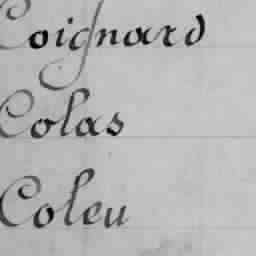 Coignard
Colas
Coleu